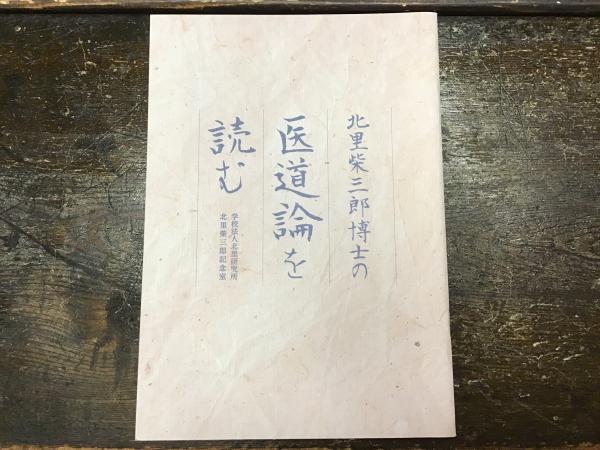 北里柴三郎博士の
医道論を
読む
学校法人北里研究所
北里柴三郎記念室